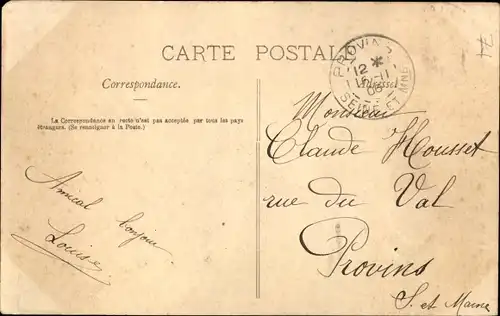 CARTE POSTALE
Correspondance.
La Correspondance au recto n'est pas acceptée par tous les pays
étrangers. (Se renseigner à la Poste.)
Amical bonjour
Louise
PROVINS
12 *
11
SEINE-ET-MNE
Adresse
Monsieur
Claude Housset
rue du Val
Provins
S. et Marne